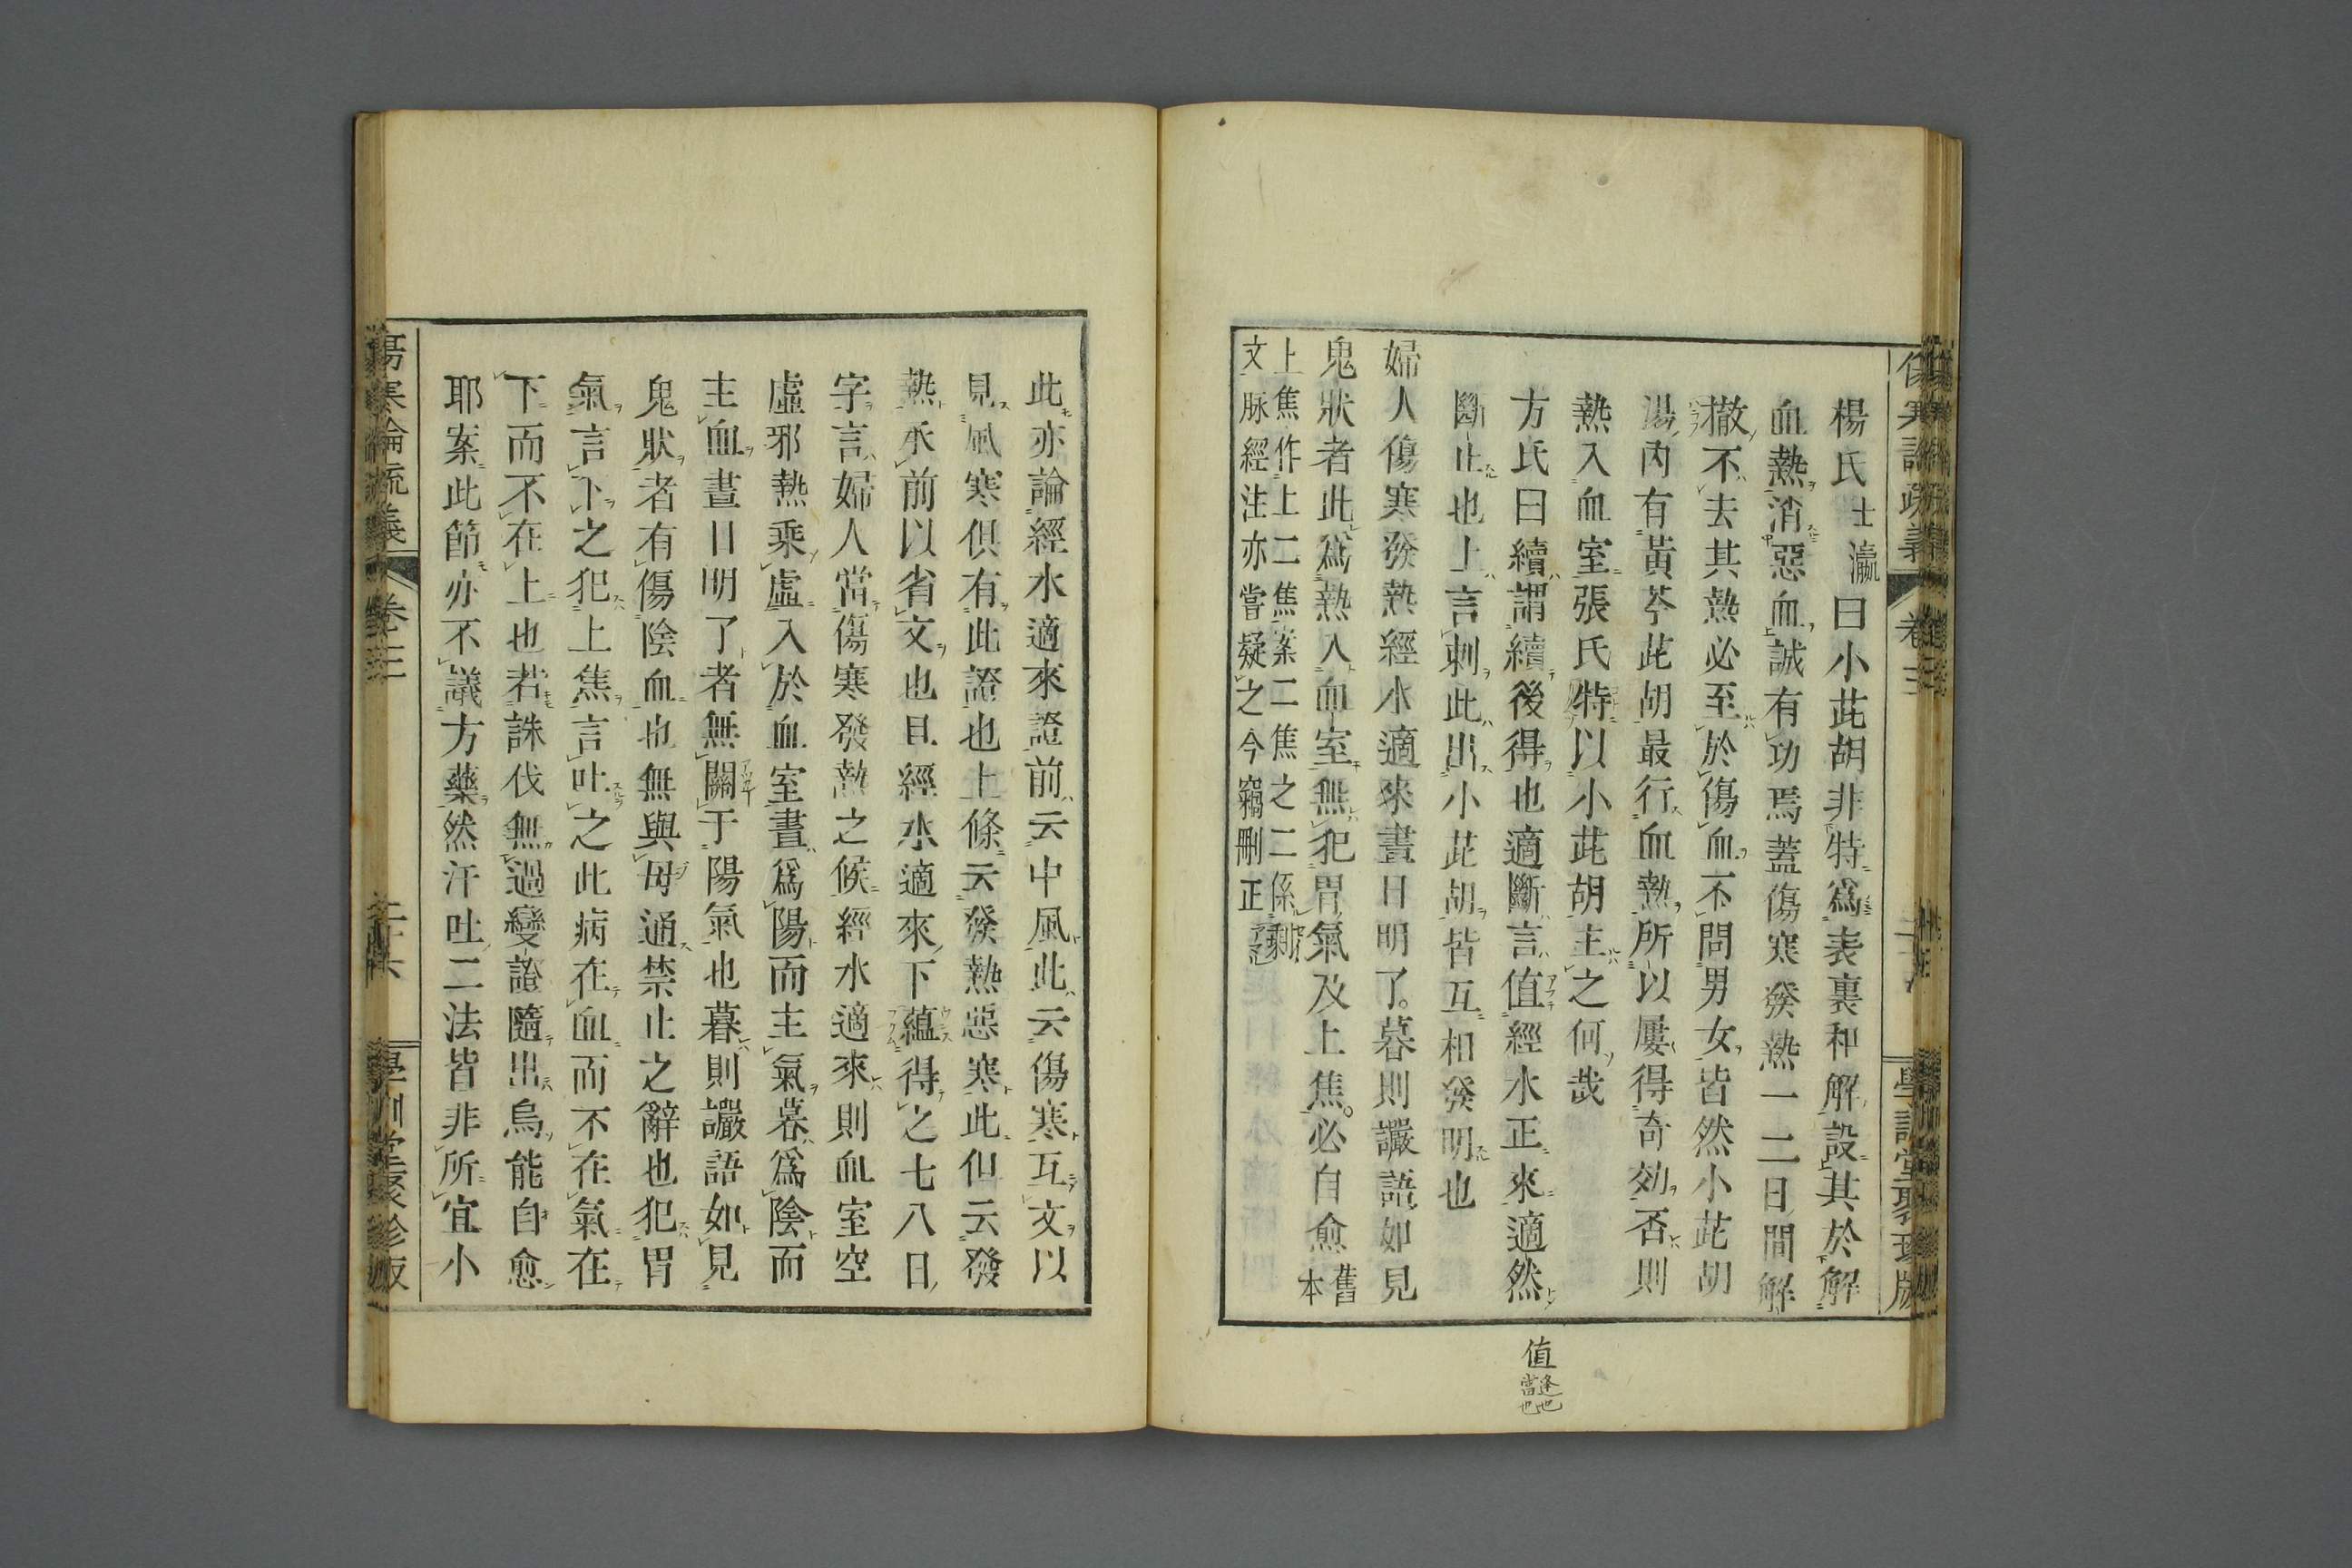 楊氏士瀛曰小茈胡非特爲表裏和解設其於解
血熱消惡血誠有功焉蓋傷寒發熱一二日間解
撤不去其熱必至於傷血不問男女皆然小茈胡
湯內有黃芩茈胡最行血熱所以屢得奇効否則
熱入血室張氏特以小茈胡主之何哉
方氏曰續謂續後得也適斷言值經水正來適然
斷止也上言刺此出小茈胡皆互相發明也
婦人傷寒發熱經水適來晝日明了暮則讝語如見
鬼狀者此爲熱入血室無犯胃氣及上焦必自愈舊本
上焦作上二焦案二焦之二係剩
文脉經注亦嘗疑之今竊刪正
值逢也
當也
此亦論經水適來證前云中風此云傷寒互文以
見風寒俱有此證也上條云發熱惡寒此但云發
熱承前以省文也且經水適來下蘊得之七八日
字言婦人當傷寒發熱之候經水適來則血室空
虛邪熱乘虛入於血室晝爲陽而主氣暮爲陰而
主血晝日明了者無關于陽氣也暮則讝語如見
鬼狀者有傷陰血也無與毋通禁止之辭也犯胃
氣言下之犯上焦言吐之此病在血而不在氣在
下而不在上也若誅伐無過變證隨出烏能自愈
耶案此節亦不議方藥然汗吐二法皆非所宜小
傷寒論疏義
卷三
學訓堂聚珍版